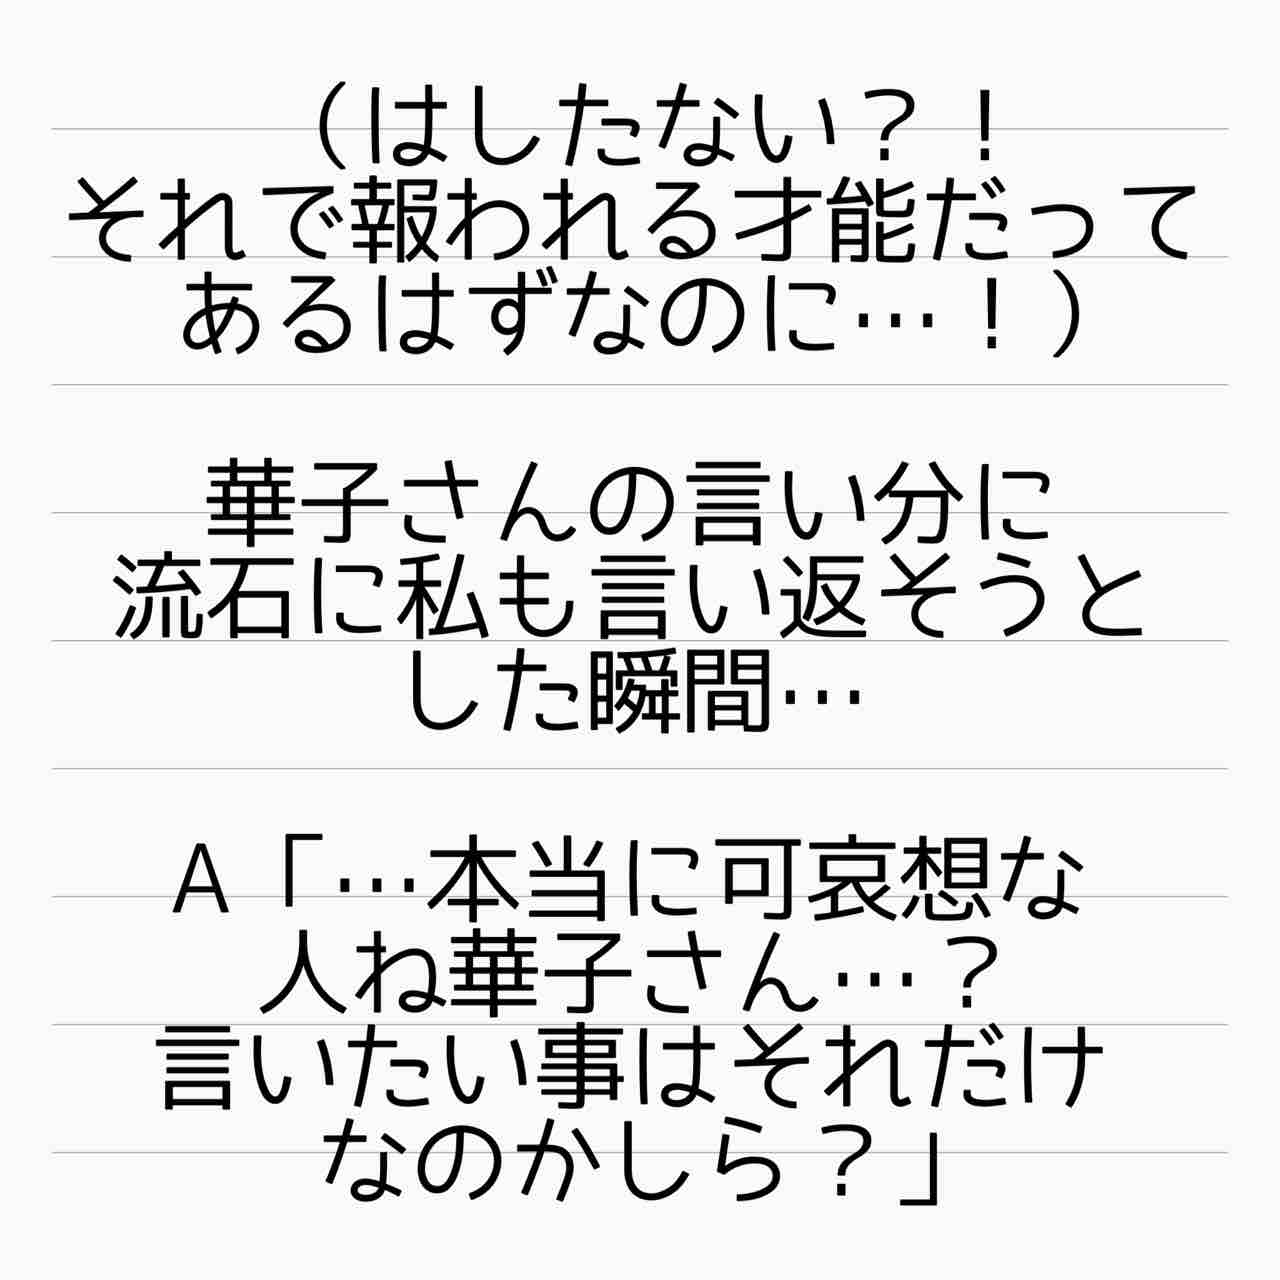 （はしたない？！
それで報われる才能だって
あるはずなのに…！）
華子さんの言い分に
流石に私も言い返そうと
した瞬間…
A「…本当に可哀想な
人ね華子さん…？
言いたい事はそれだけ
なのかしら？」